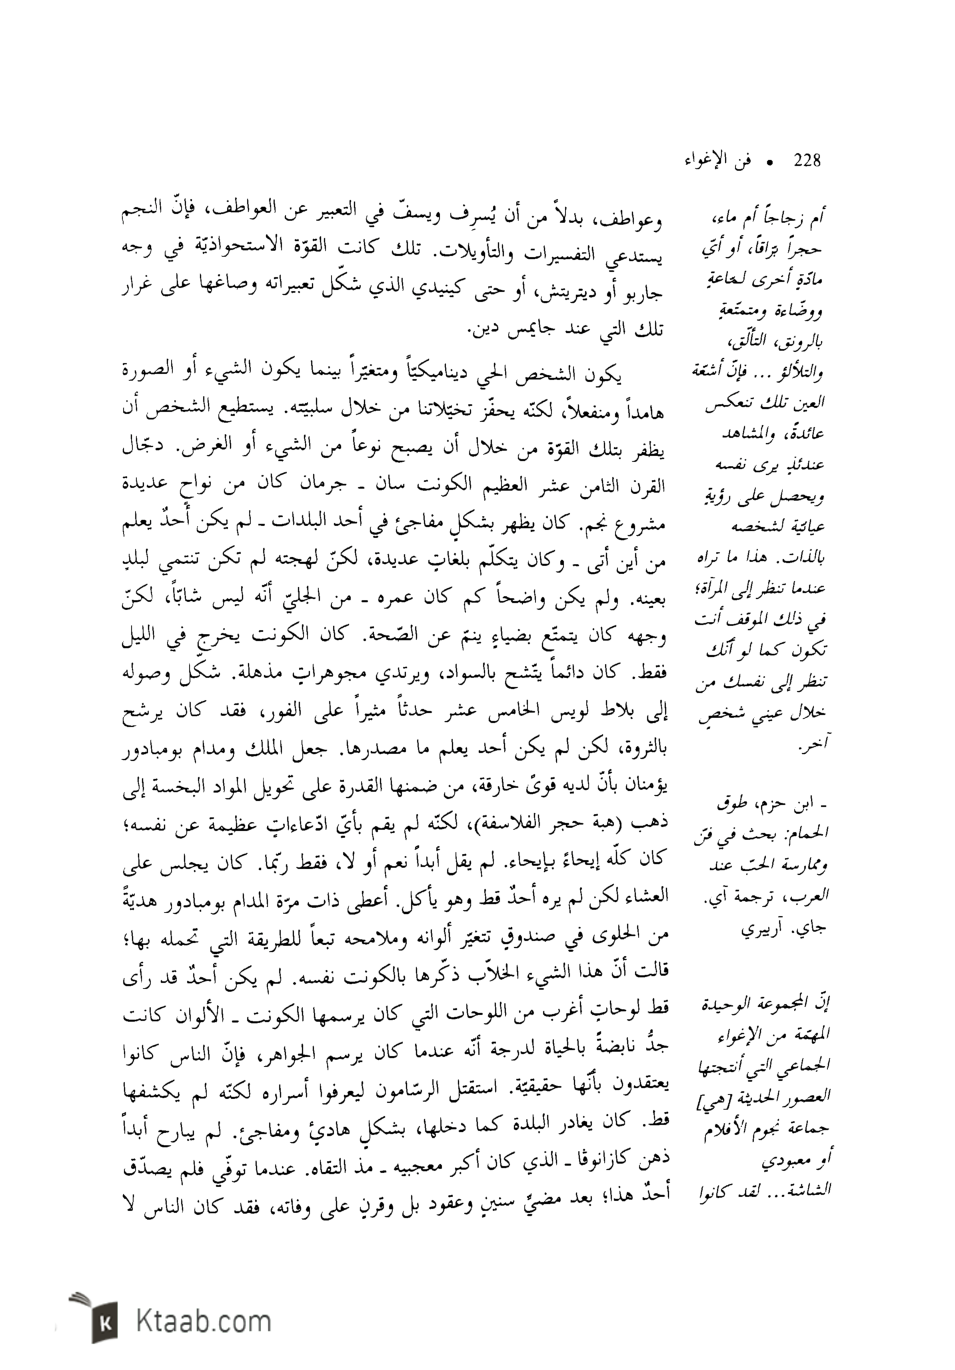 228 • فن الإغواء
وعواطف، بدلاً من أن يُسرِف ويسفّ في التعبير عن العواطف، فإنّ النجم
يستدعي التفسيرات والتأويلات. تلك كانت القوّة الاستحواذيّة في وجه
جاربو أو ديتريتش، أو حتى كينيدي الذي شكّل تعبيراته وصاغها على غرار
تلك التي عند جايمس دين.
يكون الشخص الحي ديناميكيّاً ومتغيّراً بينما يكون الشيء أو الصورة
هامداً ومنفعلاً، لكنّه يحفّز تخيّلاتنا من خلال سلبيّته. يستطيع الشخص أن
يظفر بتلك القوّة من خلال أن يصبح نوعاً من الشيء أو الغرض. دجّال
القرن الثامن عشر العظيم الكونت سان ـ جرمان كان من نواحٍ عديدة
مشروع نجم. كان يظهر بشكلٍ مفاجئ في أحد البلدات ـ لم يكن أحدٌ يعلم
من أين أتى ـ وكان يتكلّم بلغاتٍ عديدة، لكنّ لهجته لم تكن تنتمي لبلدٍ
بعينه. ولم يكن واضحاً كم كان عمره ـ من الجليّ أنّه ليس شابّاً، لكنّ
وجهه كان يتمتّع بضياءٍ ينمّ عن الصّحة. كان الكونت يخرج في الليل
فقط. كان دائماً يتّشح بالسواد، ويرتدي مجوهراتٍ مذهلة. شكّل وصوله
إلى بلاط لويس الخامس عشر حدثاً مثيراً على الفور، فقد كان يرشح
بالثروة، لكن لم يكن أحد يعلم ما مصدرها. جعل الملك ومدام بومبادور
يؤمنان بأنّ لديه قوىً خارقة، من ضمنها القدرة على تحويل المواد البخسة إلى
ذهب (هبة حجر الفلاسفة)، لكنّه لم يقم بأيّ ادّعاءاتٍ عظيمة عن نفسه؛
كان كلّه إيحاءً بإيحاء. لم يقل أبداً نعم أو لا، فقط ربّما. كان يجلس على
العشاء لكن لم يره أحدٌ قط وهو يأكل. أعطى ذات مرّة المدام بومبادور هديّةً
من الحلوى في صندوقٍ تتغيّر ألوانه وملامحه تبعاً للطريقة التي تحمله بها؛
قالت أنّ هذا الشيء الخلاّب ذكّرها بالكونت نفسه. لم يكن أحدٌ قد رأى
قط لوحاتٍ أغرب من اللوحات التي كان يرسمها الكونت ـ الألوان كانت
جدُّ نابضةً بالحياة لدرجة أنّه عندما كان يرسم الجواهر، فإنّ الناس كانوا
يعتقدون بأنّها حقيقيّة. استقتل الرسّامون ليعرفوا أسراره لكنّه لم يكشفها
قط. كان يغادر البلدة كما دخلها، بشكلٍ هادئٍ ومفاجئ. لم يبارح أبداً
ذهن كازانوڤا ـ الذي كان أكبر معجبيه ـ مذ التقاه. عندما توفّي فلم يصدّق
أحدٌ هذا؛ بعد مضيّ سنينٍ وعقود بل وقرنٍ على وفاته، فقد كان الناس لا
أم زجاجاً أم ماء،
حجراً برّاقاً، أو أيّ
مادّةٍ أخرى لمّاعةٍ
ووضّاءة ومتمتّعةٍ
بالرونق، التألّق،
والتلألؤ ... فإنّ أشعّة
العين تلك تنعكس
عائدةً، والمشاهد
عندئذٍ يرى نفسه
ويحصل على رؤيةٍ
عيانيّة لشخصه
بالذات. هذا ما تراه
عندما تنظر إلى المرآة؛
في ذلك الموقف أنت
تكون كما لو أنّك
تنظر إلى نفسك من
خلال عيني شخصٍ
آخر.
ـ ابن حزم، طوق
الحمام: بحث في فنّ
وممارسة الحبّ عند
العرب، ترجمة آي.
جاي. آربيري
إنّ المجموعة الوحيدة
المهمّة من الإغواء
الجماعي التي أنتجتها
العصور الحديثة [هي]
جماعة نجوم الأفلام
أو معبودي
الشاشة... لقد كانوا
Ktaab.com